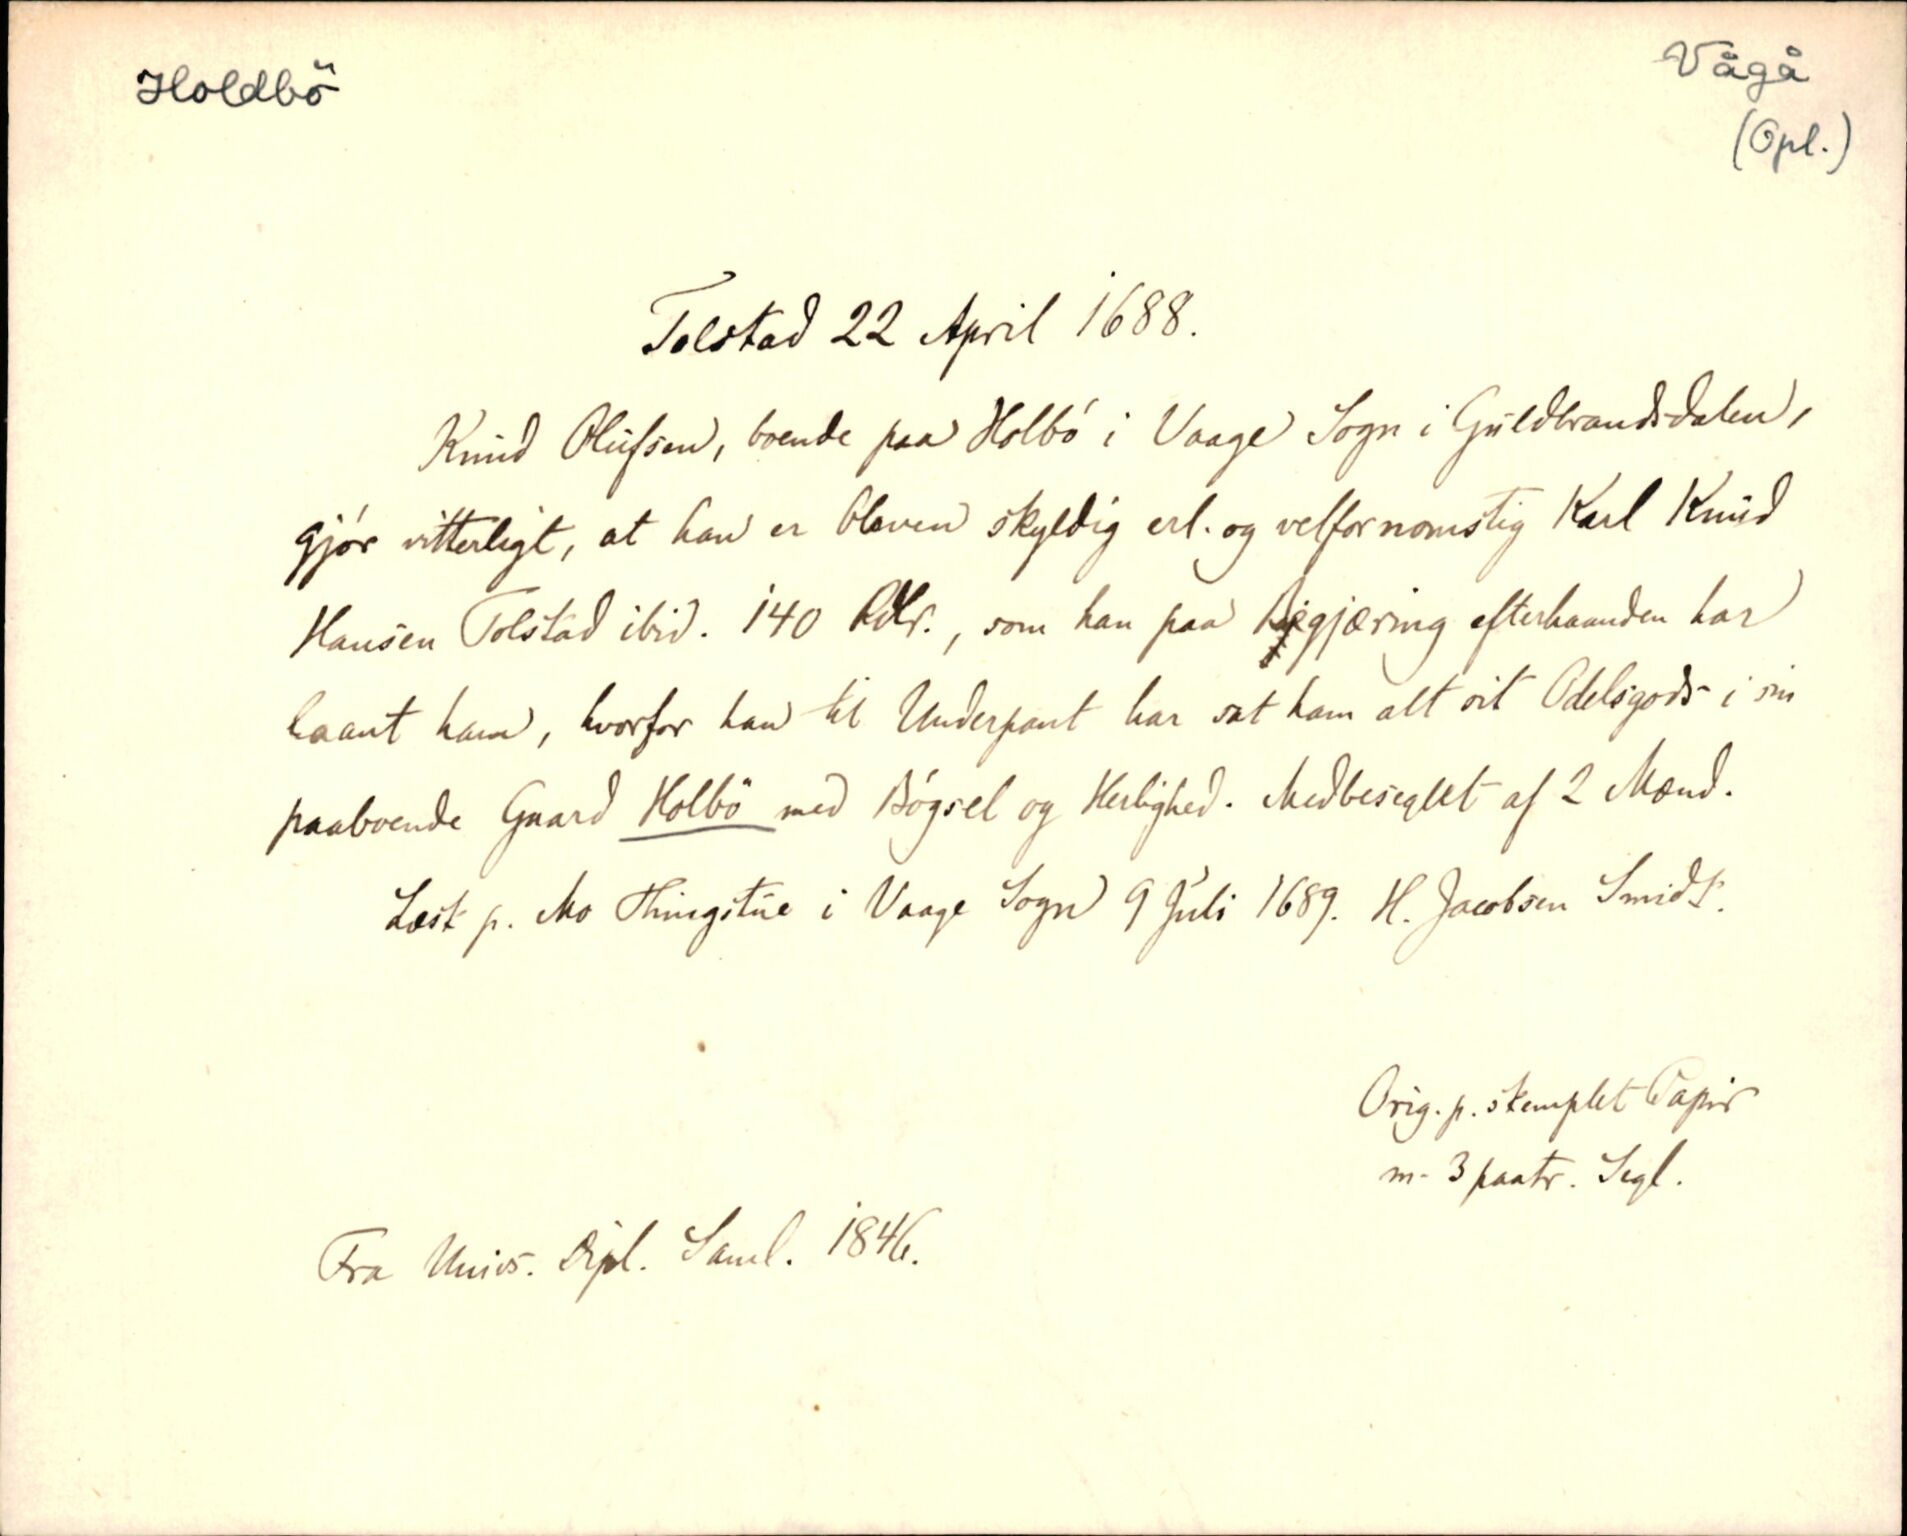 Holdbö
Vågå
(Opl.)
Tolstad 22 April 1688.
Knud Olufsen, boende paa Holbó i Vaage Sogn i Guldbrandsdalen,
gjór vitterligt, at han er bleven skyldig erl. og velfornomstig Karl Knud
Hansen Tolstad ibid. 140 Rdlr., som han paa Begjæring efterhaanden har
laant ham, hvorfor han til Underpant har sat ham alt sit Odelsgods i sin
paaboende Gaard Holbö med Bógsel og Herlighed. Medbeseglet af 2 Mænd.
Læst p. Mo Thingstue i Vaage Sogn 9 Juli 1689. H. Jacobsen Smidt.
Orig. p. stemplet Papir
m. 3 paatr. Segl.
Fra Univs. Dipl. Saml. 1846.